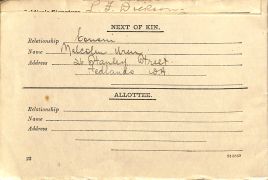 L. F. Dickson
NEXT OF KIN.
Relationship Cousin
Name Malcolm
Address 26 Stanley Street
Nedlands WA
ALLOTTEE.
Relationship
Name
Address